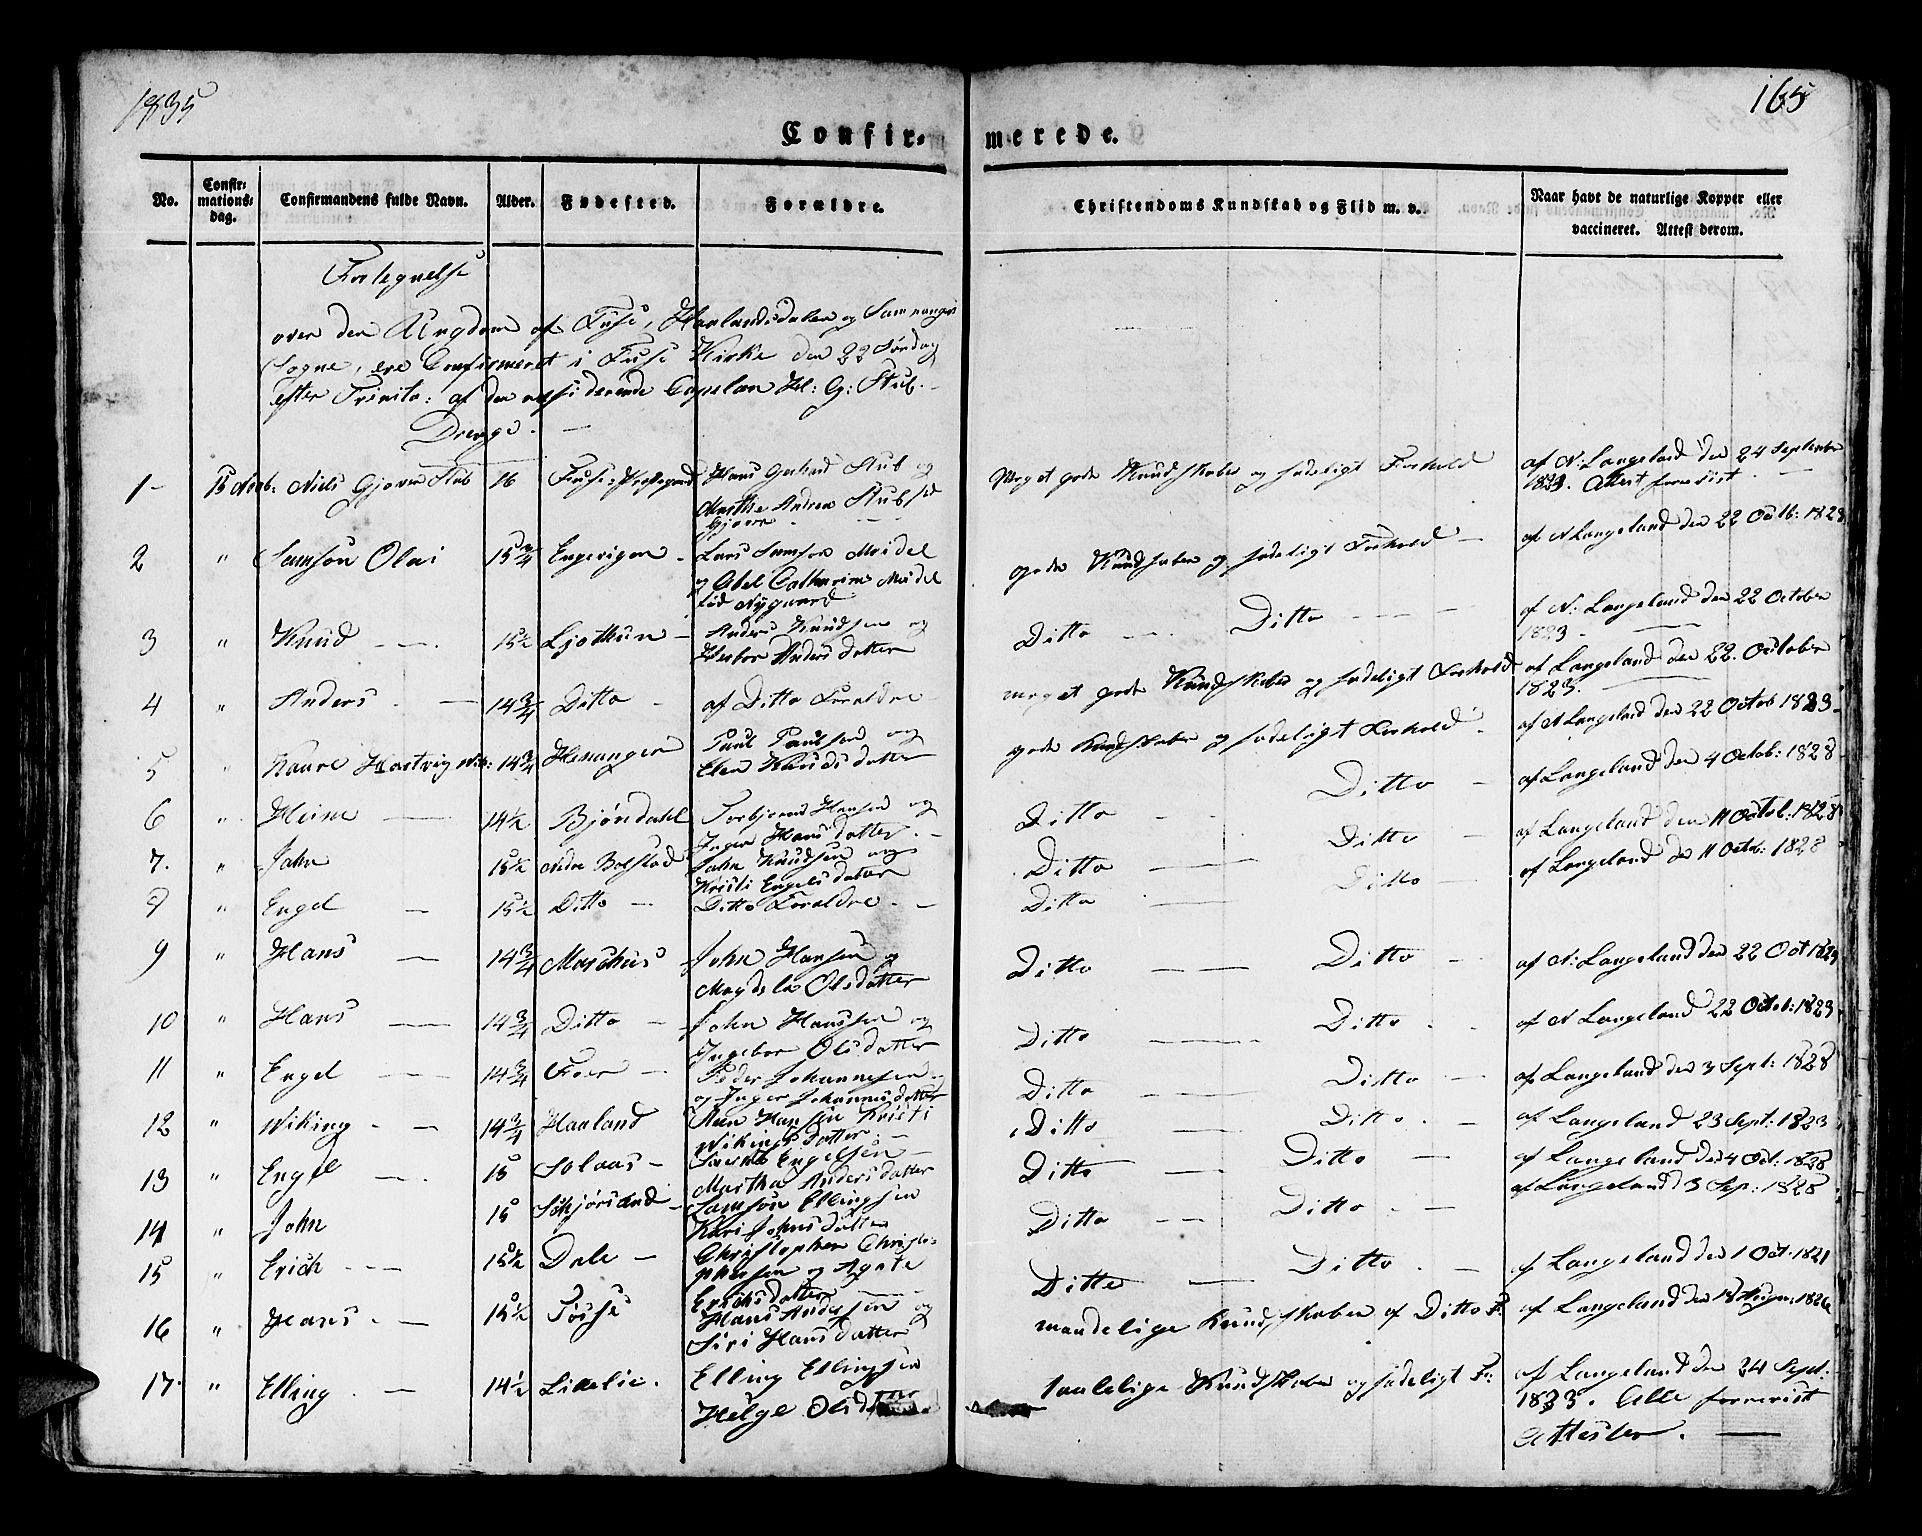 1835
165
Confir-
merede.
No.
Confir-
mations-
dag.
Confirmandens fulde Navn.
Alder.
Fødested.
Forældre.
Christendoms Kundskab og Flid m. v.
Naar havt de naturlige Kopper eller
vaccineret. Attest derom.
Fortegnelse
over den Ungdom af Fuse, Haalandsdalen og Samnanger
Sogne, ere Confirmeret i Fuse Kirke den 22 Søndag
efter Trinita: af den residerende Capelan Hl: G: Stub.
Drenge. —
1 - 15 Novb: Niels Gjøren Stub 16 Fuse Præstegaard Hans Gerhard Stub og
Marthe Andrea Stub fød
Gjøren
Meget gode Kundskaber og sædeligt Forhold
af N: Langeland den 24 September
1823. Attest foreviist
2 " Samson Olai 15 3/4 Engevigen - Lars Samson Midel
og Abel Catharine Midel
fød Nygaard
gode Kundskaber og sædeligt Forhold —
af N Langeland den 22 Octb: 1823
3 " Knud — 15 1/2 Ljothun - Anders Knudsen og
Herbor Anders datter
Ditto — Ditto —
af N: Langeland den 22 October
1823 —
4 " Anders — 14 3/4 Ditto - af Ditto Forældre
meget gode Kundskaber og sædeligt Forhold
af Langeland den 22. October
1823. —
5 " Kaare Hartvig 14 3/4 Henanger Paul Paulsen og
Elen Knuds datter
gode Kundskaber og sædeligt Forhold
af N Langeland den 22 Octob 1823
6 " Heine — 14 1/2 Bjørndahl Torbjørns Hansen og
Inger Hans datter. -
Ditto — Ditto —
af Langeland den 4 Octob: 1828
7. " John 15 1/2 Nedre Bolstad John Knudsen og
Kristi Engels datter
Ditto — Ditto —
af Langeland den 11 Octob: 1828
8 " Engel — 15 1/2 Ditto — Ditto Forældre. -
Ditto — Ditto —
af Langeland den 11 Octb: 1828
9 " Hans — 14 3/4 John Hansen og
Magdela Olsdatter
Ditto — Ditto -
af N: Langeland den 22 Oct 1823
10 " Hans — 14 3/4 Ditto — John Hanssen og
Ingebor Olsdatter
Ditto — Ditto
af N Langeland 22 Octob: 1823
11 " Engel — 14 3/4 — Peder Johannesen
og Inger Johannesdatter
Ditto — Ditto —
af Langeland den 3 Sept: 1828
12 " Wiking — 14 3/4 Haaland Hansen Kristi
Wikings datter. —
Ditto — Ditto. —
af Langeland 23 Sept: 1823
13 " Engel — 15 Solaas — Engelsen
Martha Anders datter
Ditto — Ditto —
af Langeland den 4 Oct: 1828
14 " John 15 Skjørsand - Samson Ellingsen
Kari Johns datter
Ditto — Ditto. -
af Langeland 3 Sep: 1828
15 " Erich — 15 1/2 Dale — Christopher Christo-
phersen og Agate
Erichsdatter
Ditto — Ditto. —
af Langeland den 1 Oct. 1821
16 " Hans. — 15 1/2 Tøsse Hans Andersen og
Siri Hans datter
maadelige Kundskaber af Ditto F:
af Langeland den 18 1826
17. " Elling. — 14 1/2 Likelie. Elling Ellingsen
Helge Olsdatter
taalelige Kundskaber og sædeligt F:
af Langeland den 24 Sept:
1823. Alle foreviist
Attester. —